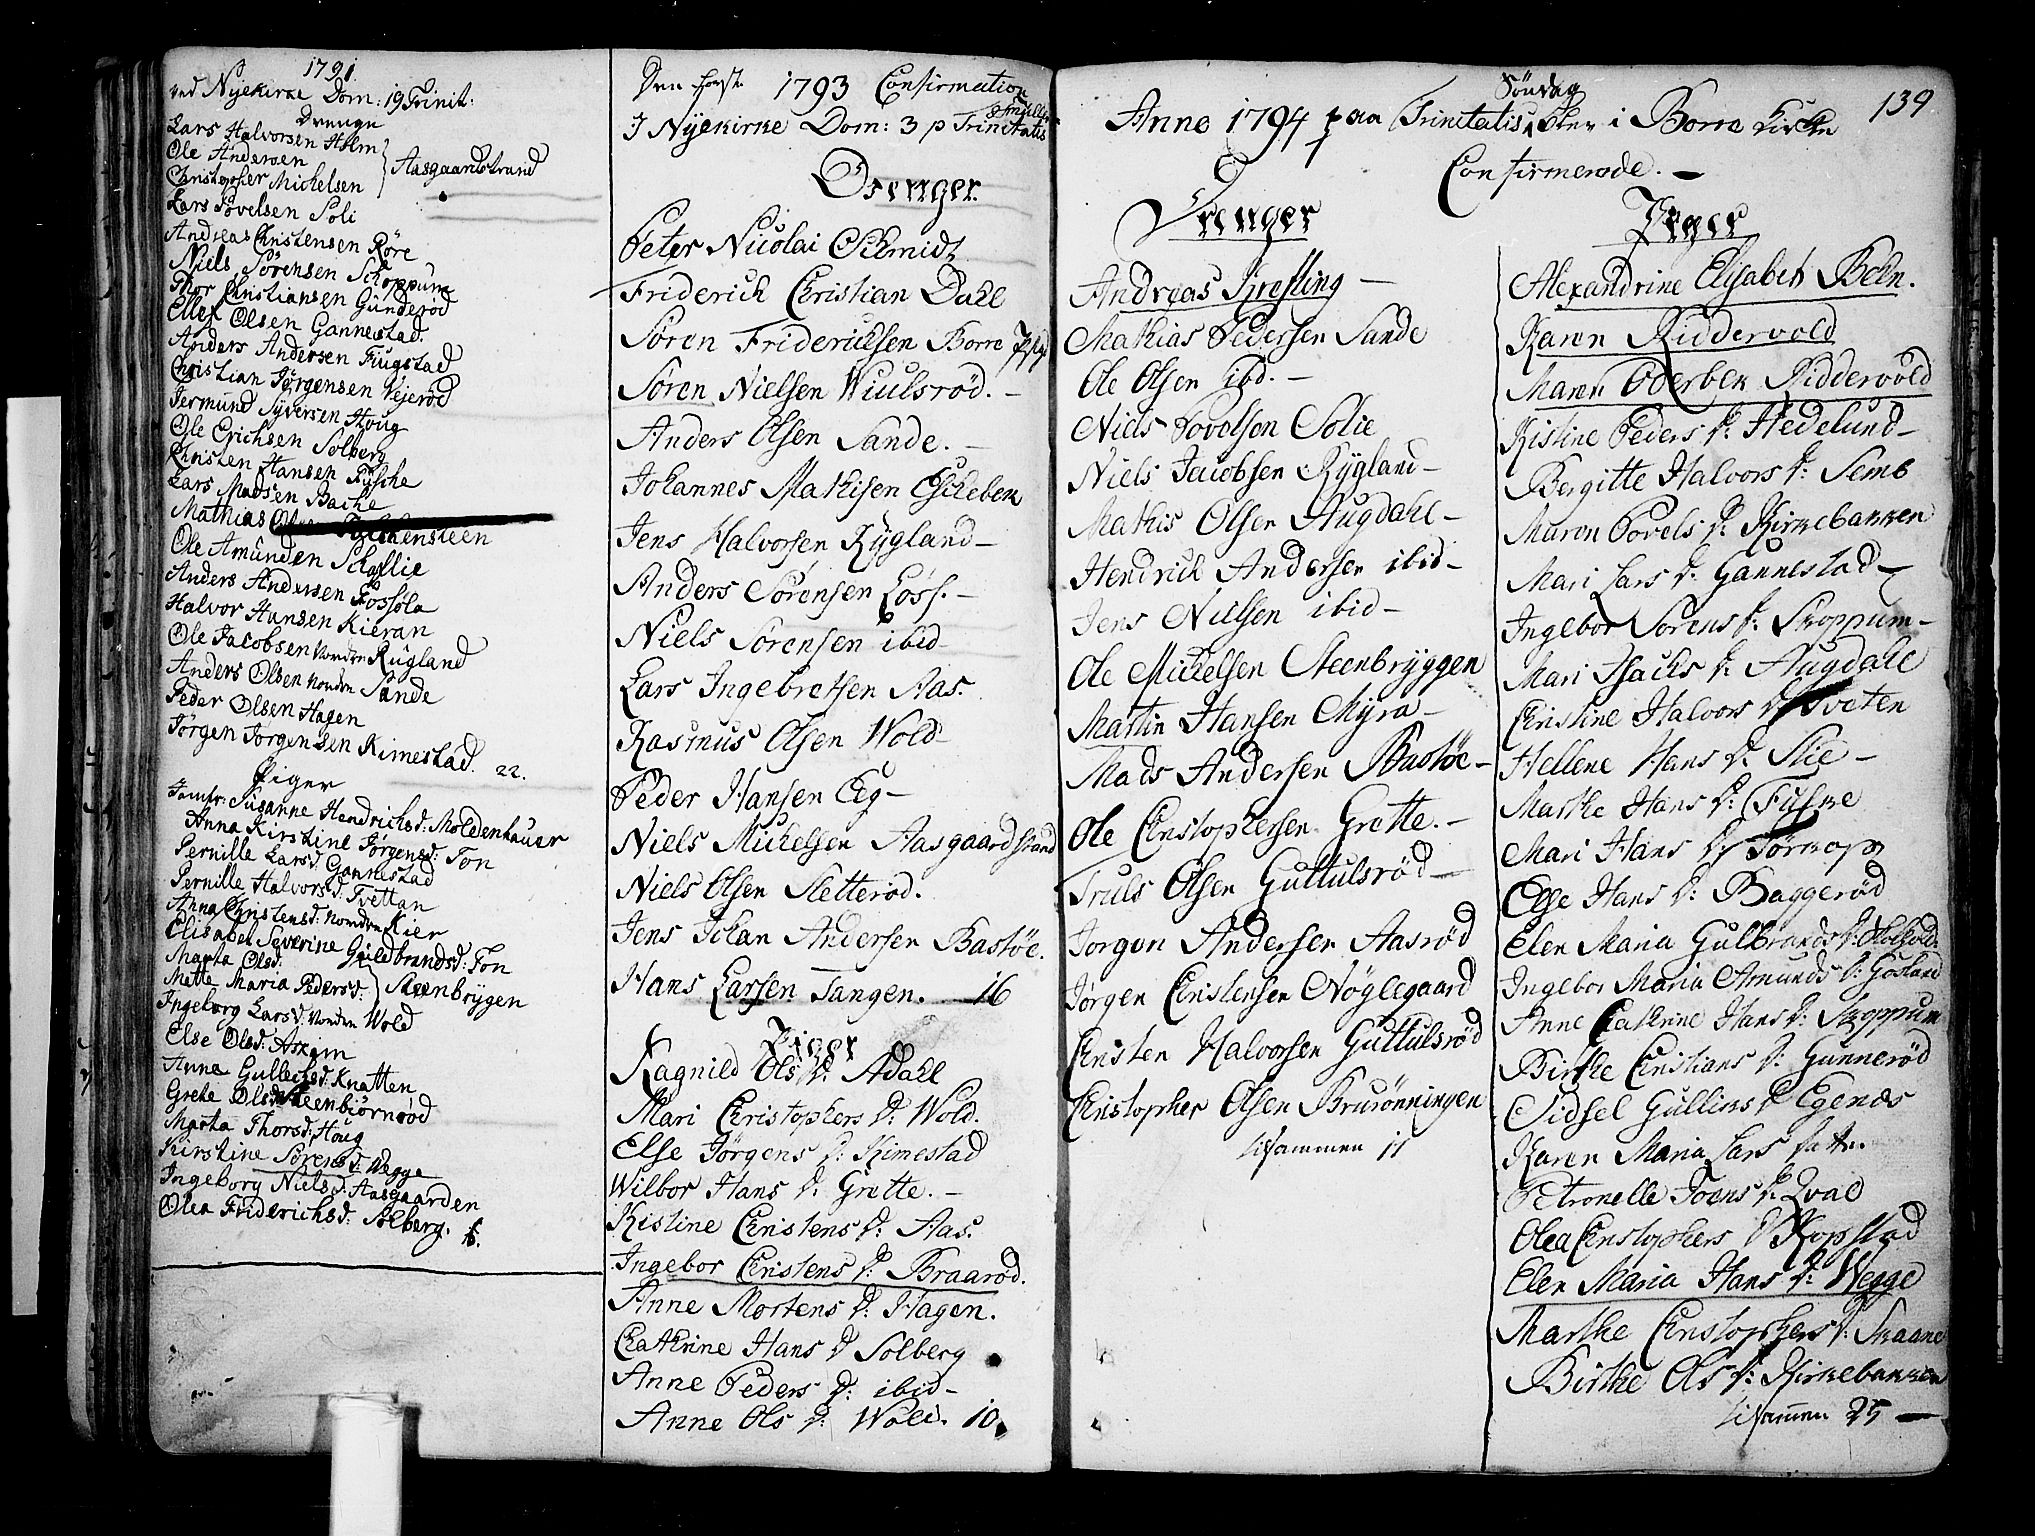 1791.
ved Nyekirke Dom: 19 Trinit:
Drenge
Lars Halvorsen Holm
Ole Andersen
Christopher Michelsen
Aasgaardstrand
Lars Povelsen Soli
Andreas Christensen Røre
Niels Sørensen Schoppum
Thor Christiansen Gunderød
Ellef Olsen Gannestad.
Anders Andersen Fiugstad
Christian Jørgensen Vejerød
Jermund Syversen Houg
Ole Erichsen Solberg
Christen Hansen Fysche
Lars Madsen Bache
Mathias
Ole Amunden Schallie
Anders Andersen Fossola
Halvor Hansen Kieran
Ole Jacobsen Nordre Rugland
Anders Olsen Nordre Sande
Peder Olsen Hagen
Jørgen Jørgensen Kimestad. 22.
Piger
Jomfr: Susanne Hendrichsd: Moldenhauer
Anna Kirstine Jørgensd: Ton
Pernille Larsd: Gannestad
Pernille Halvorsd: Tvettan
Anna Christensd: Nordre Kier
Elisabet Severine Guldbrandsd: Ton
Marta Olsd:
Mette Maria Pedersd:
Steenbrygen
Ingeborg Larsd: Nordre Wold
Else Olsd: Askim
Anne Gullechsd: Knatten
Grete Olsd: Steenbiørnrød
Marta Thorsd: Houg
Kirstine Sørensd: Wegge
Ingeborg Nielsd: Aasgaarden
Olea Friderichsd: Solberg. 16.
Den første 1793 Confirmation
I Nyekirke Dom: 3 p Trinitatis
Drenger.
Peter Nicolai Schmidt
Friderich Christian Dahl
Søren Fridericksen Borre
Søren Nielsen Wiulsrød.
Anders Olsen Sande.
Johannes Mathisen Eskebek
Jens Halvorsen Rygland
Anders Sørensen Løss.
Niels Sørensen ibid
Lars Ingebretsen Aas.
Rasmus Olsen Wold
Peder Hansen Eeg
Niels Mickelsen Aasgaardstrand
Niels Olsen Sletterød.
Jens Johan Andersen Bastøe.
Hans Larsen Tangen. 16
Piger
Ragnild Ols D: Adahl
Mari Christophers D: Wold.
Else Jørgens D: Kimestad
Wilbor Hans D: Grette.
Kistine Christens D: Aas.
Ingebor Christens D: Braarød.
Anne Mortens D: Hagen.
Chathrine Hans D Solberg
Anne Peders D: ibid
Anne Ols D: Wold. 10.
139
Anno 1794 paa Trinitatis Søndag blev i Borre Kirke
Confirmerede.
Drenger
Andreas Kresting
Mathias Pedersen Sande
Ole Olsen ibd.
Niels Povelsen Solie
Niels Jacobsen Rygland
Mathis Olsen Augdahl
Hendrick Andersen ibid
Jens Nielsen ibid
Ole Mickelsen Steenbryggen
Martin Hansen Myra
Mads Andersen Bastøe
Ole Christophersen Grette.
Truls Olsen Guttulsrød
Jørgen Andersen Aasrød
Jørgen Christensen Nøglegaard
Christen Halvorsen Guttulsrød
Christopher Olsen Brurønningen
tilsammen 17
Piger
Alexandrine Elisabeth Bohn.
Karen Riddervold
Maren Oderbek Riddervold
Kistine Peders D: Hedelund
Bergitte Halvors D: Semb
Maren Povels D: Kirkebakken
Mari Lars D: Gannestad
Ingebor Sørens D: Skoppum
Mari Isachs D: Augdahl
Christine Halvors D Tveten
Hellene Hans D: Slie
Marthe Hans D: Fuske
Mari Hans D Tørkop
Else Hans D: Baggerød
Elen Maria Gulbrands D:
Ingebor Maria Amunds D:
Anne Chathrine Hans D: Skoppum
Birthe Christians D: Gunnerød
Sidsel Gullics D Egenæs
Karen Maria Lars
Petronelle Joens D: Qval
Olea Christophers D Kopstad
Elen Maria Hans D: Wegge
Marthe Christophers D: Skaane
Birthe Ols D: Kirkebakken
tilsammen 25